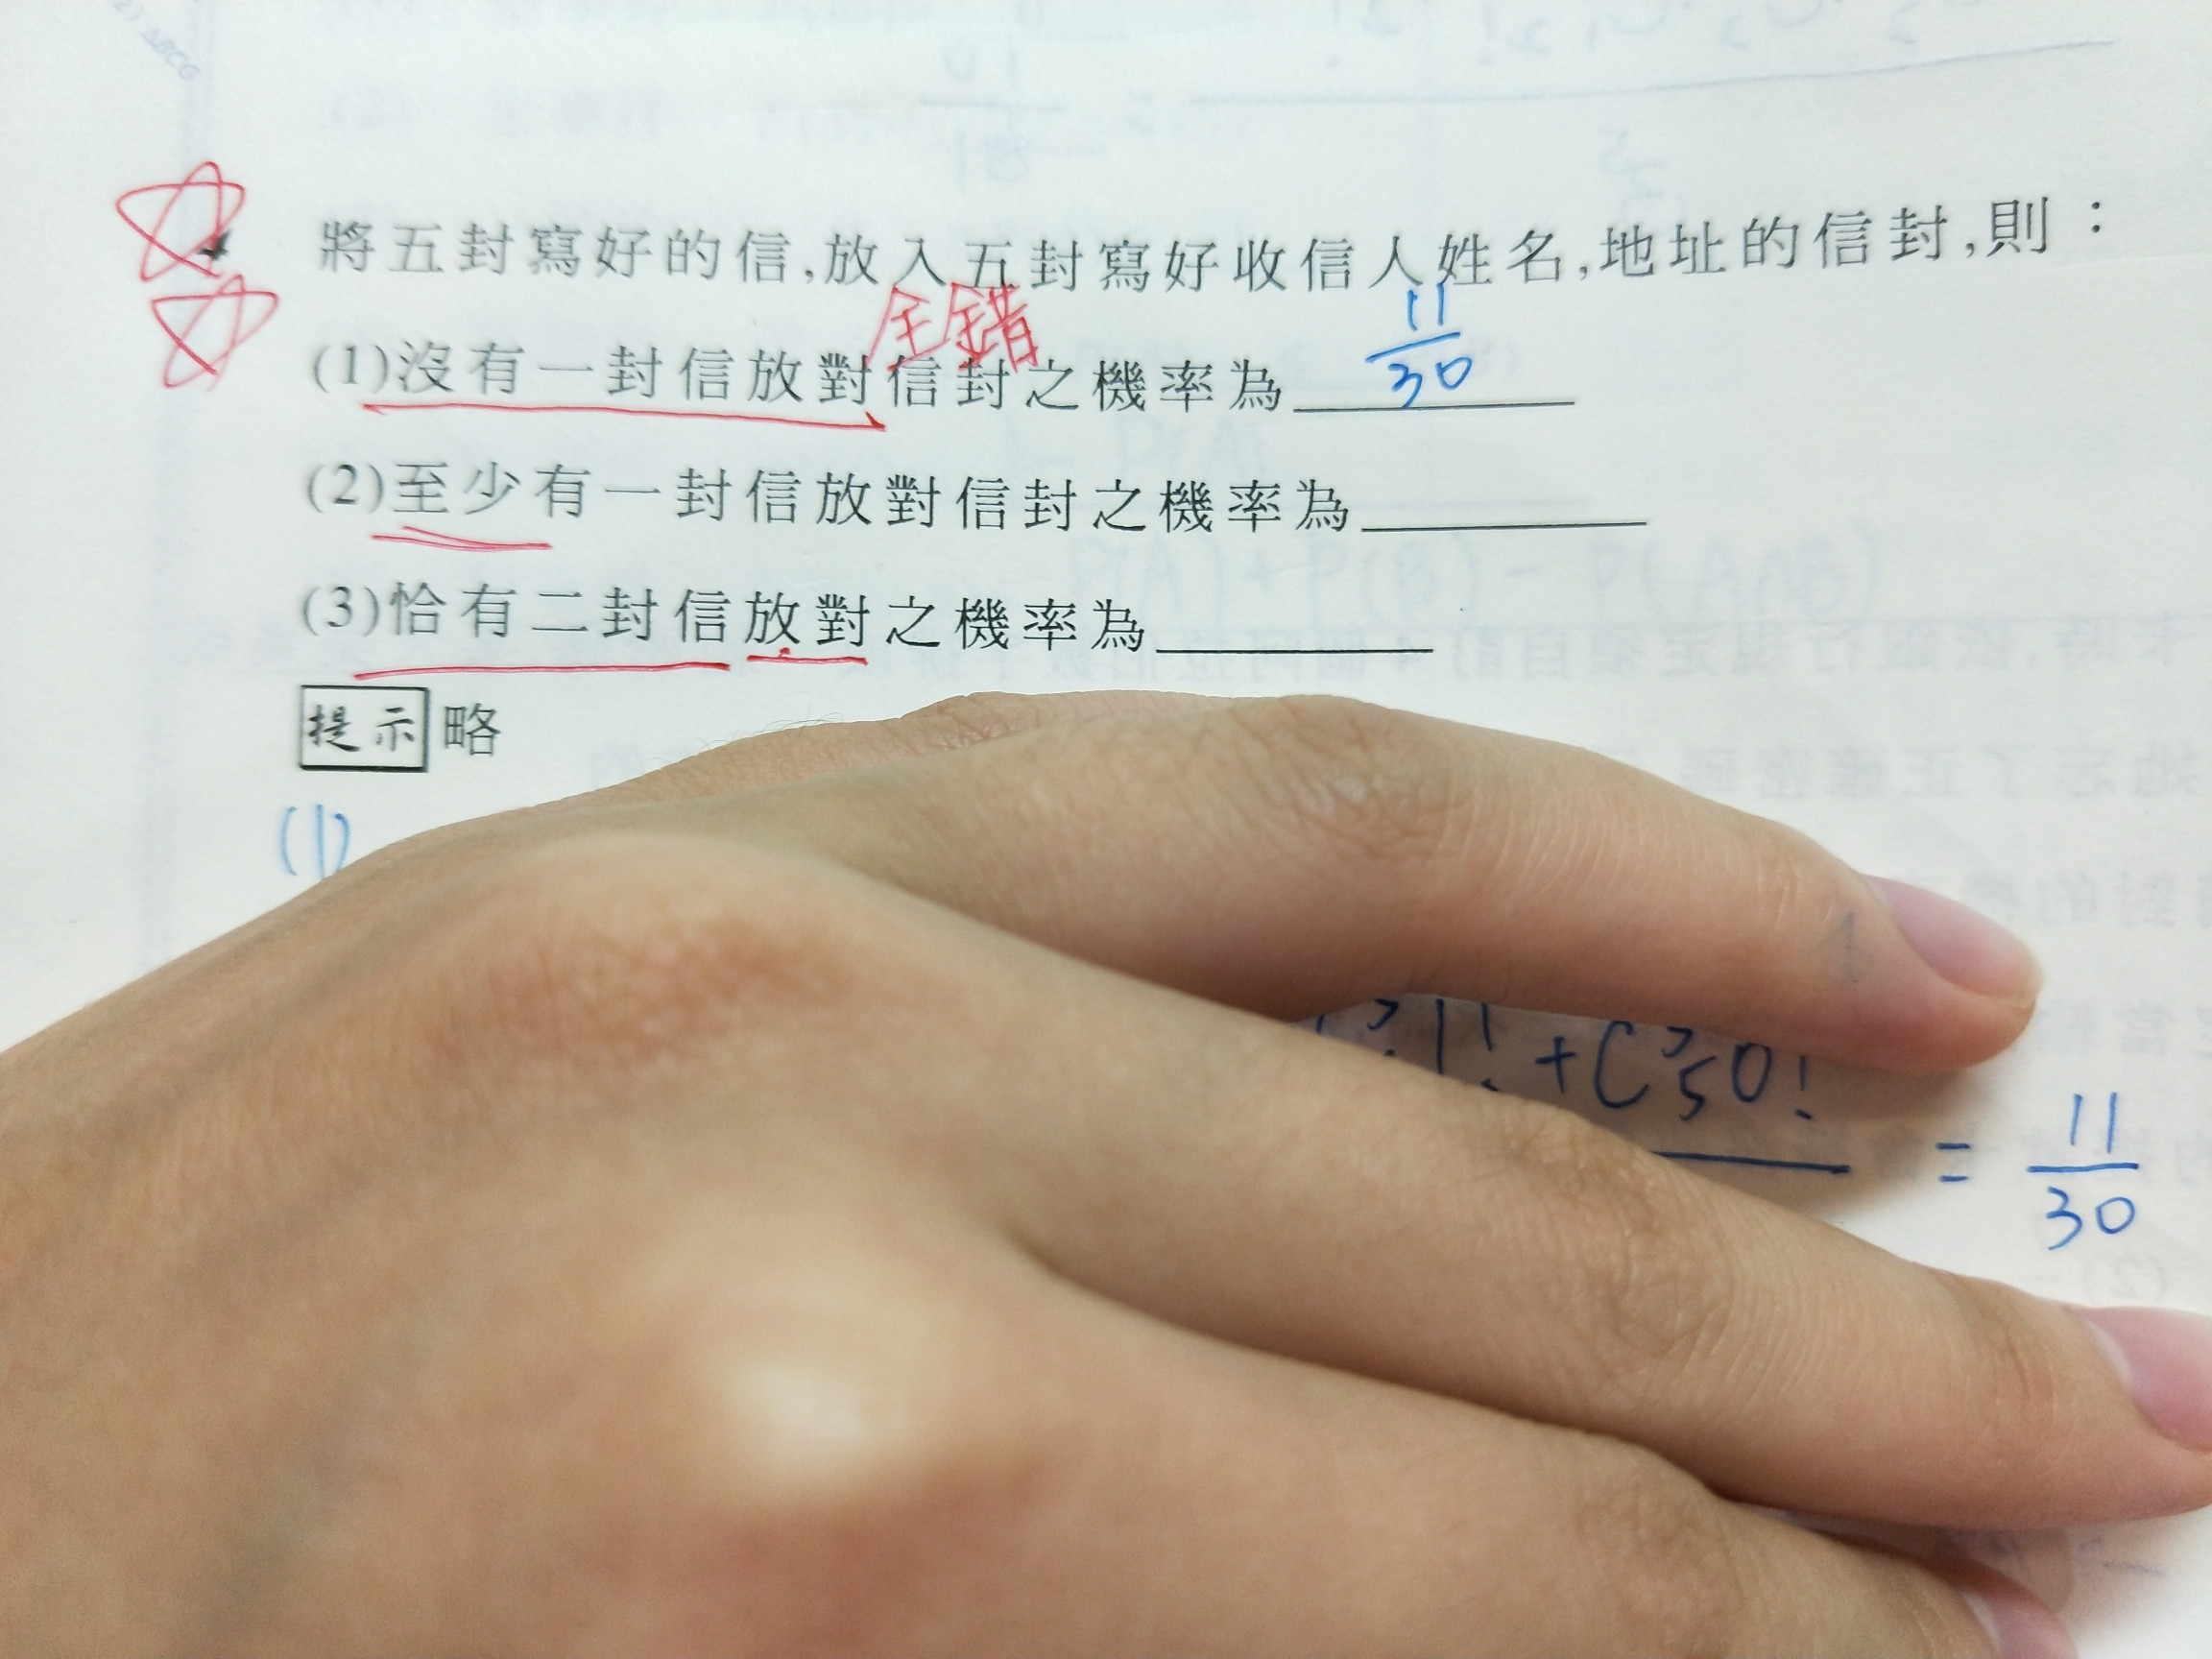 將五封寫好的信,放入五封寫好收信人姓名,地址的信封,則：
全錯
(1)沒有一封信放對信封之機率為 11/30
(2)至少有一封信放對信封之機率為
(3)恰有二封信放對之機率為
提示 略
(1)
1! + C⁵₅0!
= 11/30